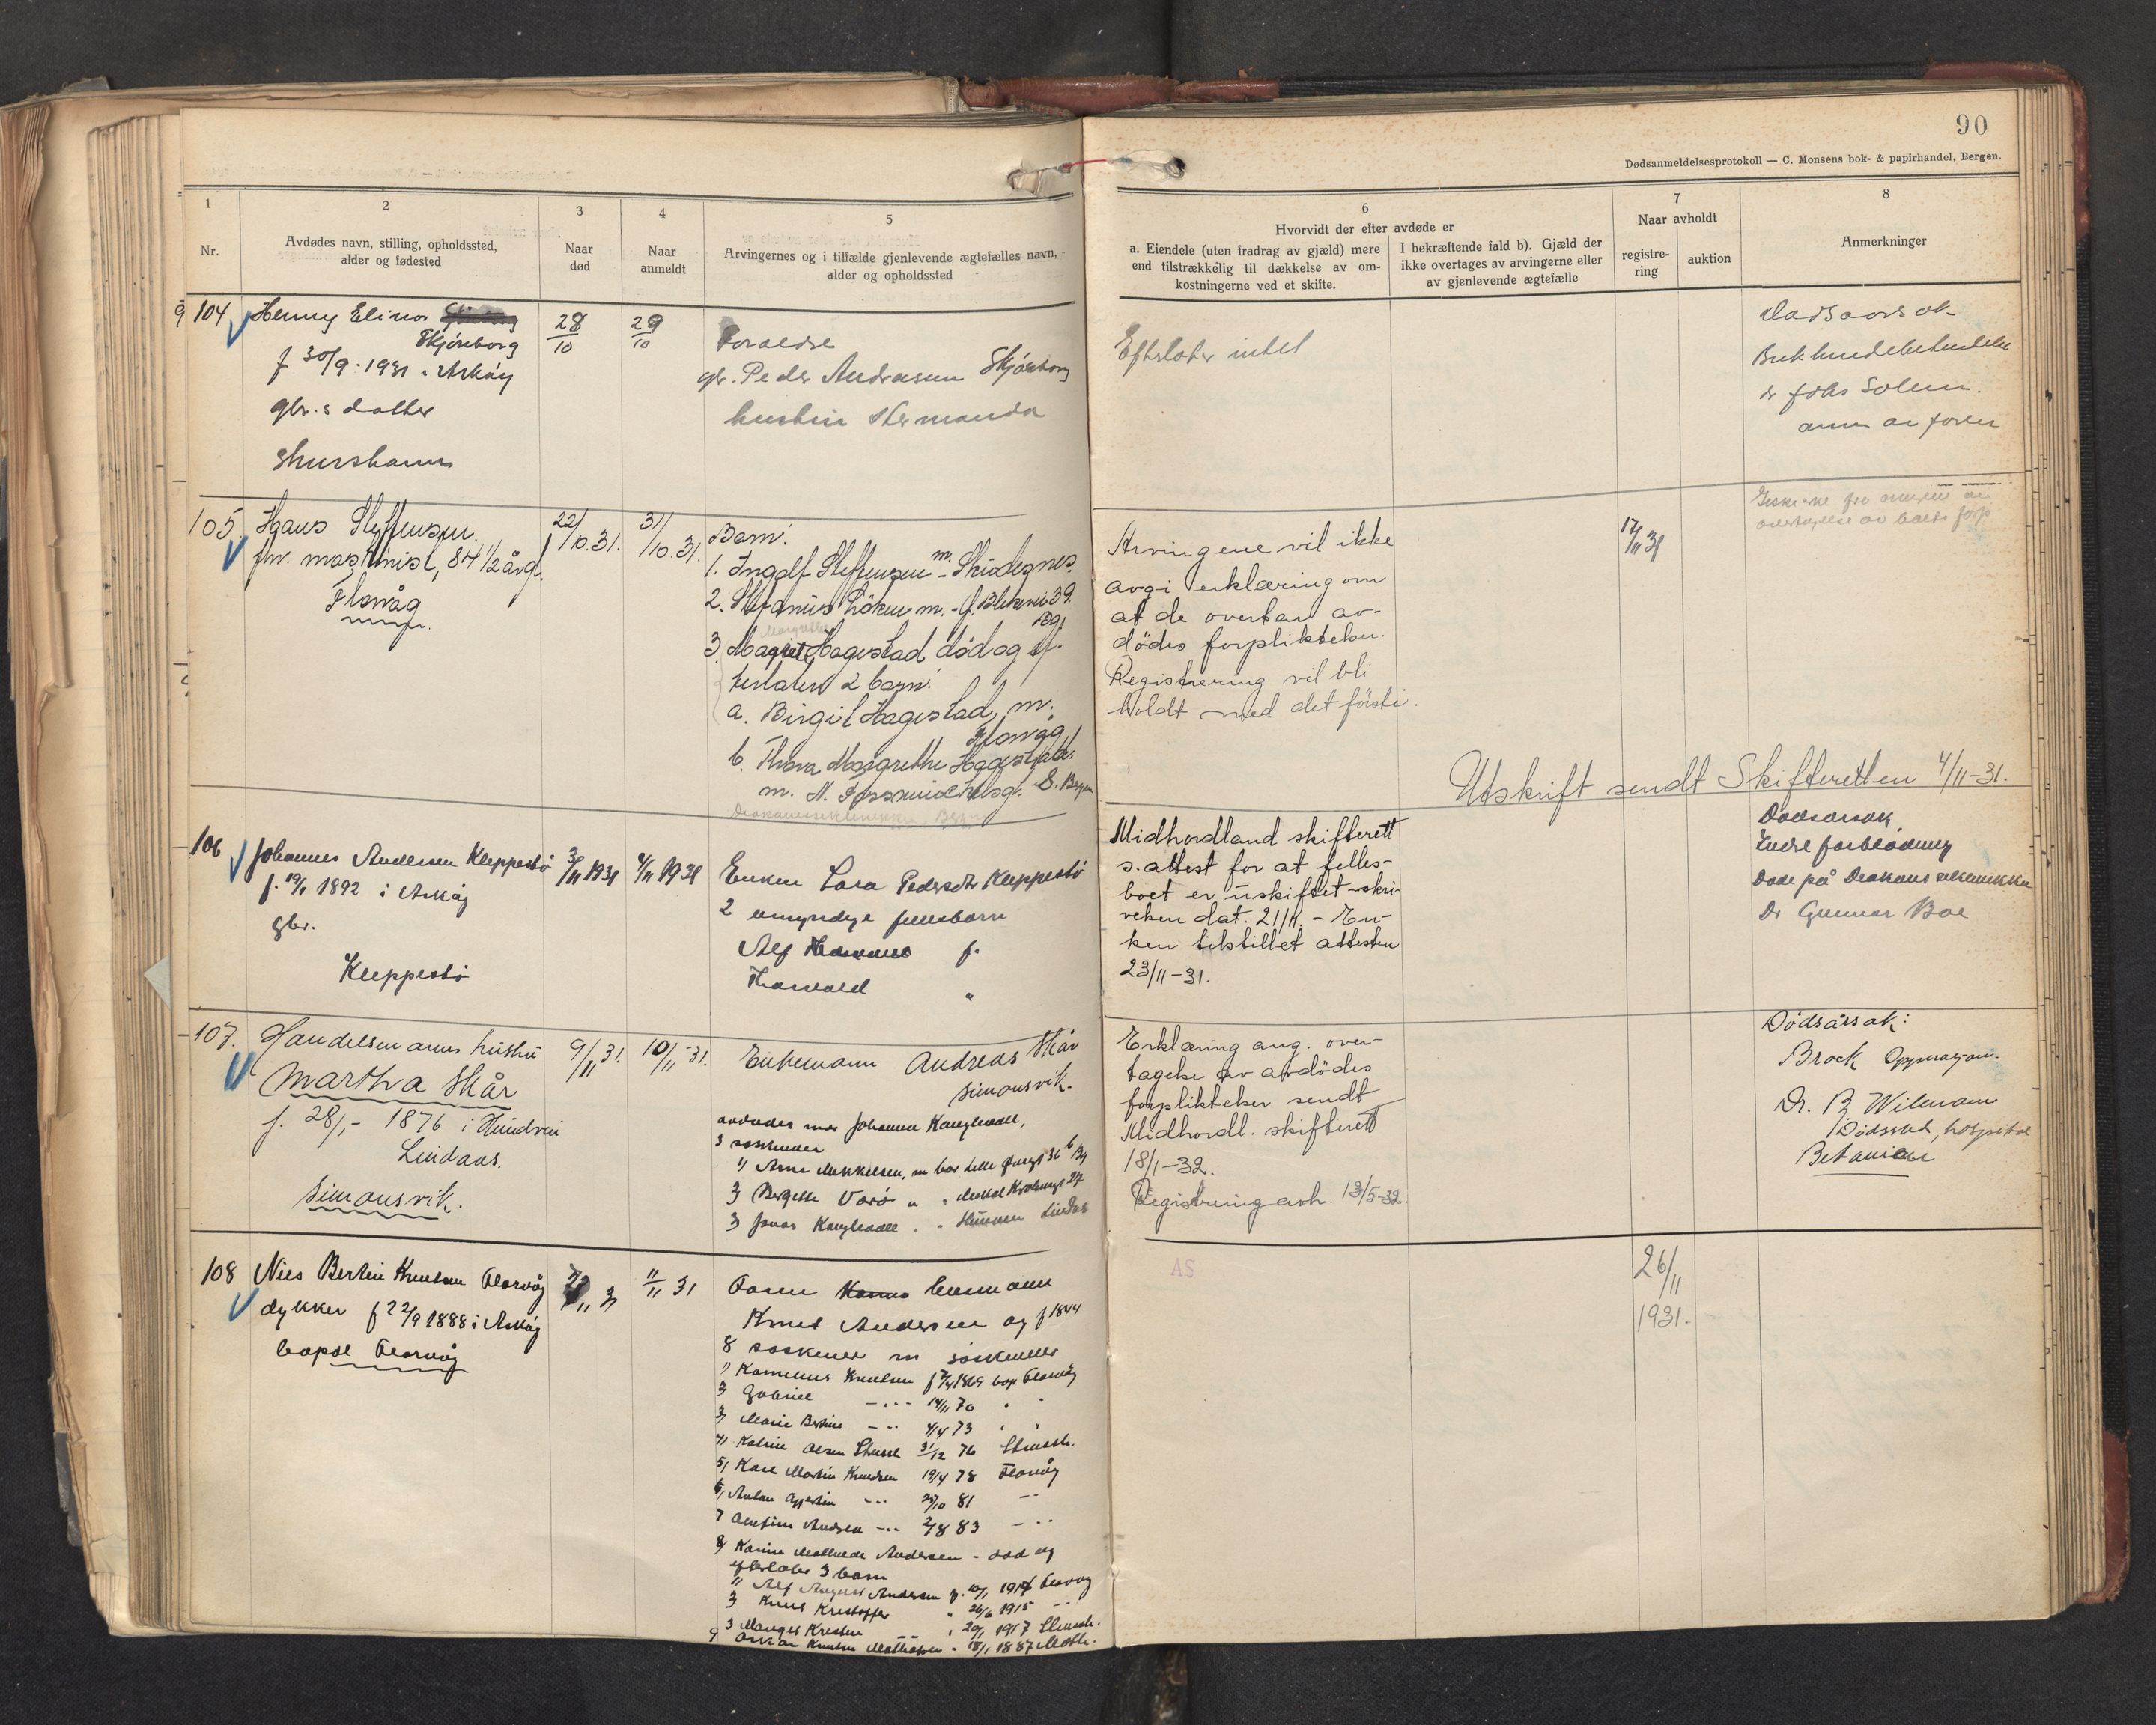 90
Dødsanmeldelsesprotokoll — C. Monsens bok- & papirhandel, Bergen.
1
2
3
4
5
Nr.
Avdødes navn, stilling, opholdssted,
alder og fødested
Naar
død
Naar
anmeldt
Arvingernes og i tilfælde gjenlevende ægtefælles navn,
alder og opholdssted
6
Hvorvidt der efter avdøde er
a. Eiendele (uten fradrag av gjæld) mere
end tilstrækkelig til dækkelse av om-
kostningerne ved et skifte.
I bekræftende fald b). Gjæld der
ikke overtages av arvingerne eller
av gjenlevende ægtefælle
7
Naar avholdt
registre-
ring
auktion
8
Anmerkninger
104 Henny Elinor
Skjöreborg
f 30/9 · 1931 i Askøy
gbr.s datter
28/10
29/10
Foraedre
gbr. Peder Andreasen Skjöreborg
hustru Hermanda
Efterlater intet
Dødsaarsak
dr Johs Solem.
anm av faren
105. Hans Steffensen.
fhv. maskinist, 84 1/2 årg.
Florvåg
22/10.31.
31/10.31.
Barn:
1. Ingolf Steffensen m. - Skudesnes.
2. Stefanus Löken m. - J. Blekevei 39
Bg.
3. Magret Hagestad död og ef-
terlater 2 barn:
a. Birgit Hagestad, m.
Florvåg
b. Thora Margrethe Hagestad.
Diakonisseklinikken, Bergen
Arvingene vil ikke
avgi erklæring om
at de overtar av-
dödes forpliktelser.
Registrering vil bli
holdt med det første.
17/11 31
Utskrift sendt Skifteretten 4/11-31.
106 Johannes Andersen Kleppestö
f. 19/1 1892 i Askøy
gbr.
Kleppestö
3/11 1931
4/11 1931
Enken Lara Pedersdtr Kleppestö
2 umyndige fellesbarn
Alf f.
Thorvald "
Midhordland skifterett
s. attest for at felles-
boet er uskiftet skri-
velsen dat. 21/11. - En-
ken tilstillet attesten
23/11-31.
Dødsårsak
Indre forblödning
Döde på Diakonisseklinikken
Dr Gunnar Boe
107. Handelsmanns hustru
Martha Skår
f. 28/1 - 1876 i Hundvin
Lindaas.
Simonsvik.
9/11 31.
10/11-31.
Enkemann Andreas Skår
Simonsvik.
avdødes mor Johanne Kanglevall,
3 søskender
1) Arne Mikkelsen,
2) Bergitte
3) Jonas Kanglevall
Erklæring ang. over-
tagelse av avdödes
forpliktelser sendt
Midhordl. skifterett
18/1-32.
Registrering avh. 13/5-32.
Dödsårsak:
Brock Operasjon.
Dr. B. Wilmann
Dödssted, hospital
Betanien
108 Nils Bertin Knutsen Florvåg
dykker f 22/9 1888 i Askøy
bopæl Florvåg
11/11 31
Faren
Knut Andersen og f 1844
8 søskener
1) Kornelius Knutsen f 1869 bop Florvåg
2) Gabriel 14/11 70
3) Marie Bertine 4/4 73
4) Katrine Olsen 31/12 76
5) Karl Martin Knudsen 19/4 78 Florvåg
6) Anton 81
7 Andrea 83
8) Karine Andersen - død og
efterlater 3 barn
1) Alf August Andersen Florvåg
2 Knut Kristoffer 26/6 1915
3 Kristen 1917
9 Oskar Knutsen 18/1 1887
AS
26/11
1931.